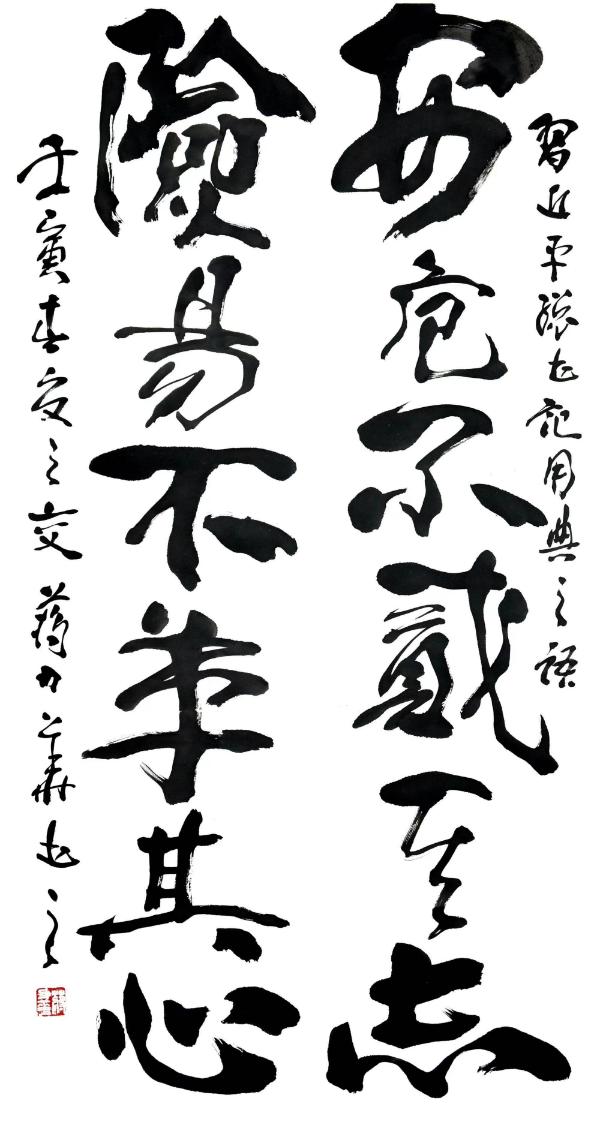 習近平總書記用典之語
安危不貳其志
險易不革其心
壬寅春夏之交蔣力華書之